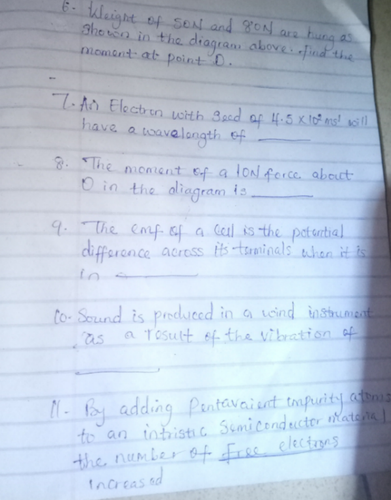 6. Weight of 50N and 80N are hung as
shown in the diagram above. find the
moment at point O.
7. An Electron with Speed of 4.5 x 10 ms will
have a wavelength of ______
8. The moment of a 10N force about
O in the diagram is ______
9. The emf of a Cell is the potential
difference across its terminals when it is
in ______
10. Sound is produced in a wind instrument
as a result of the vibration of
______
11. By adding Pentavalent impurity atoms
to an intristic Semiconductor Material
the number of free electrons
increased